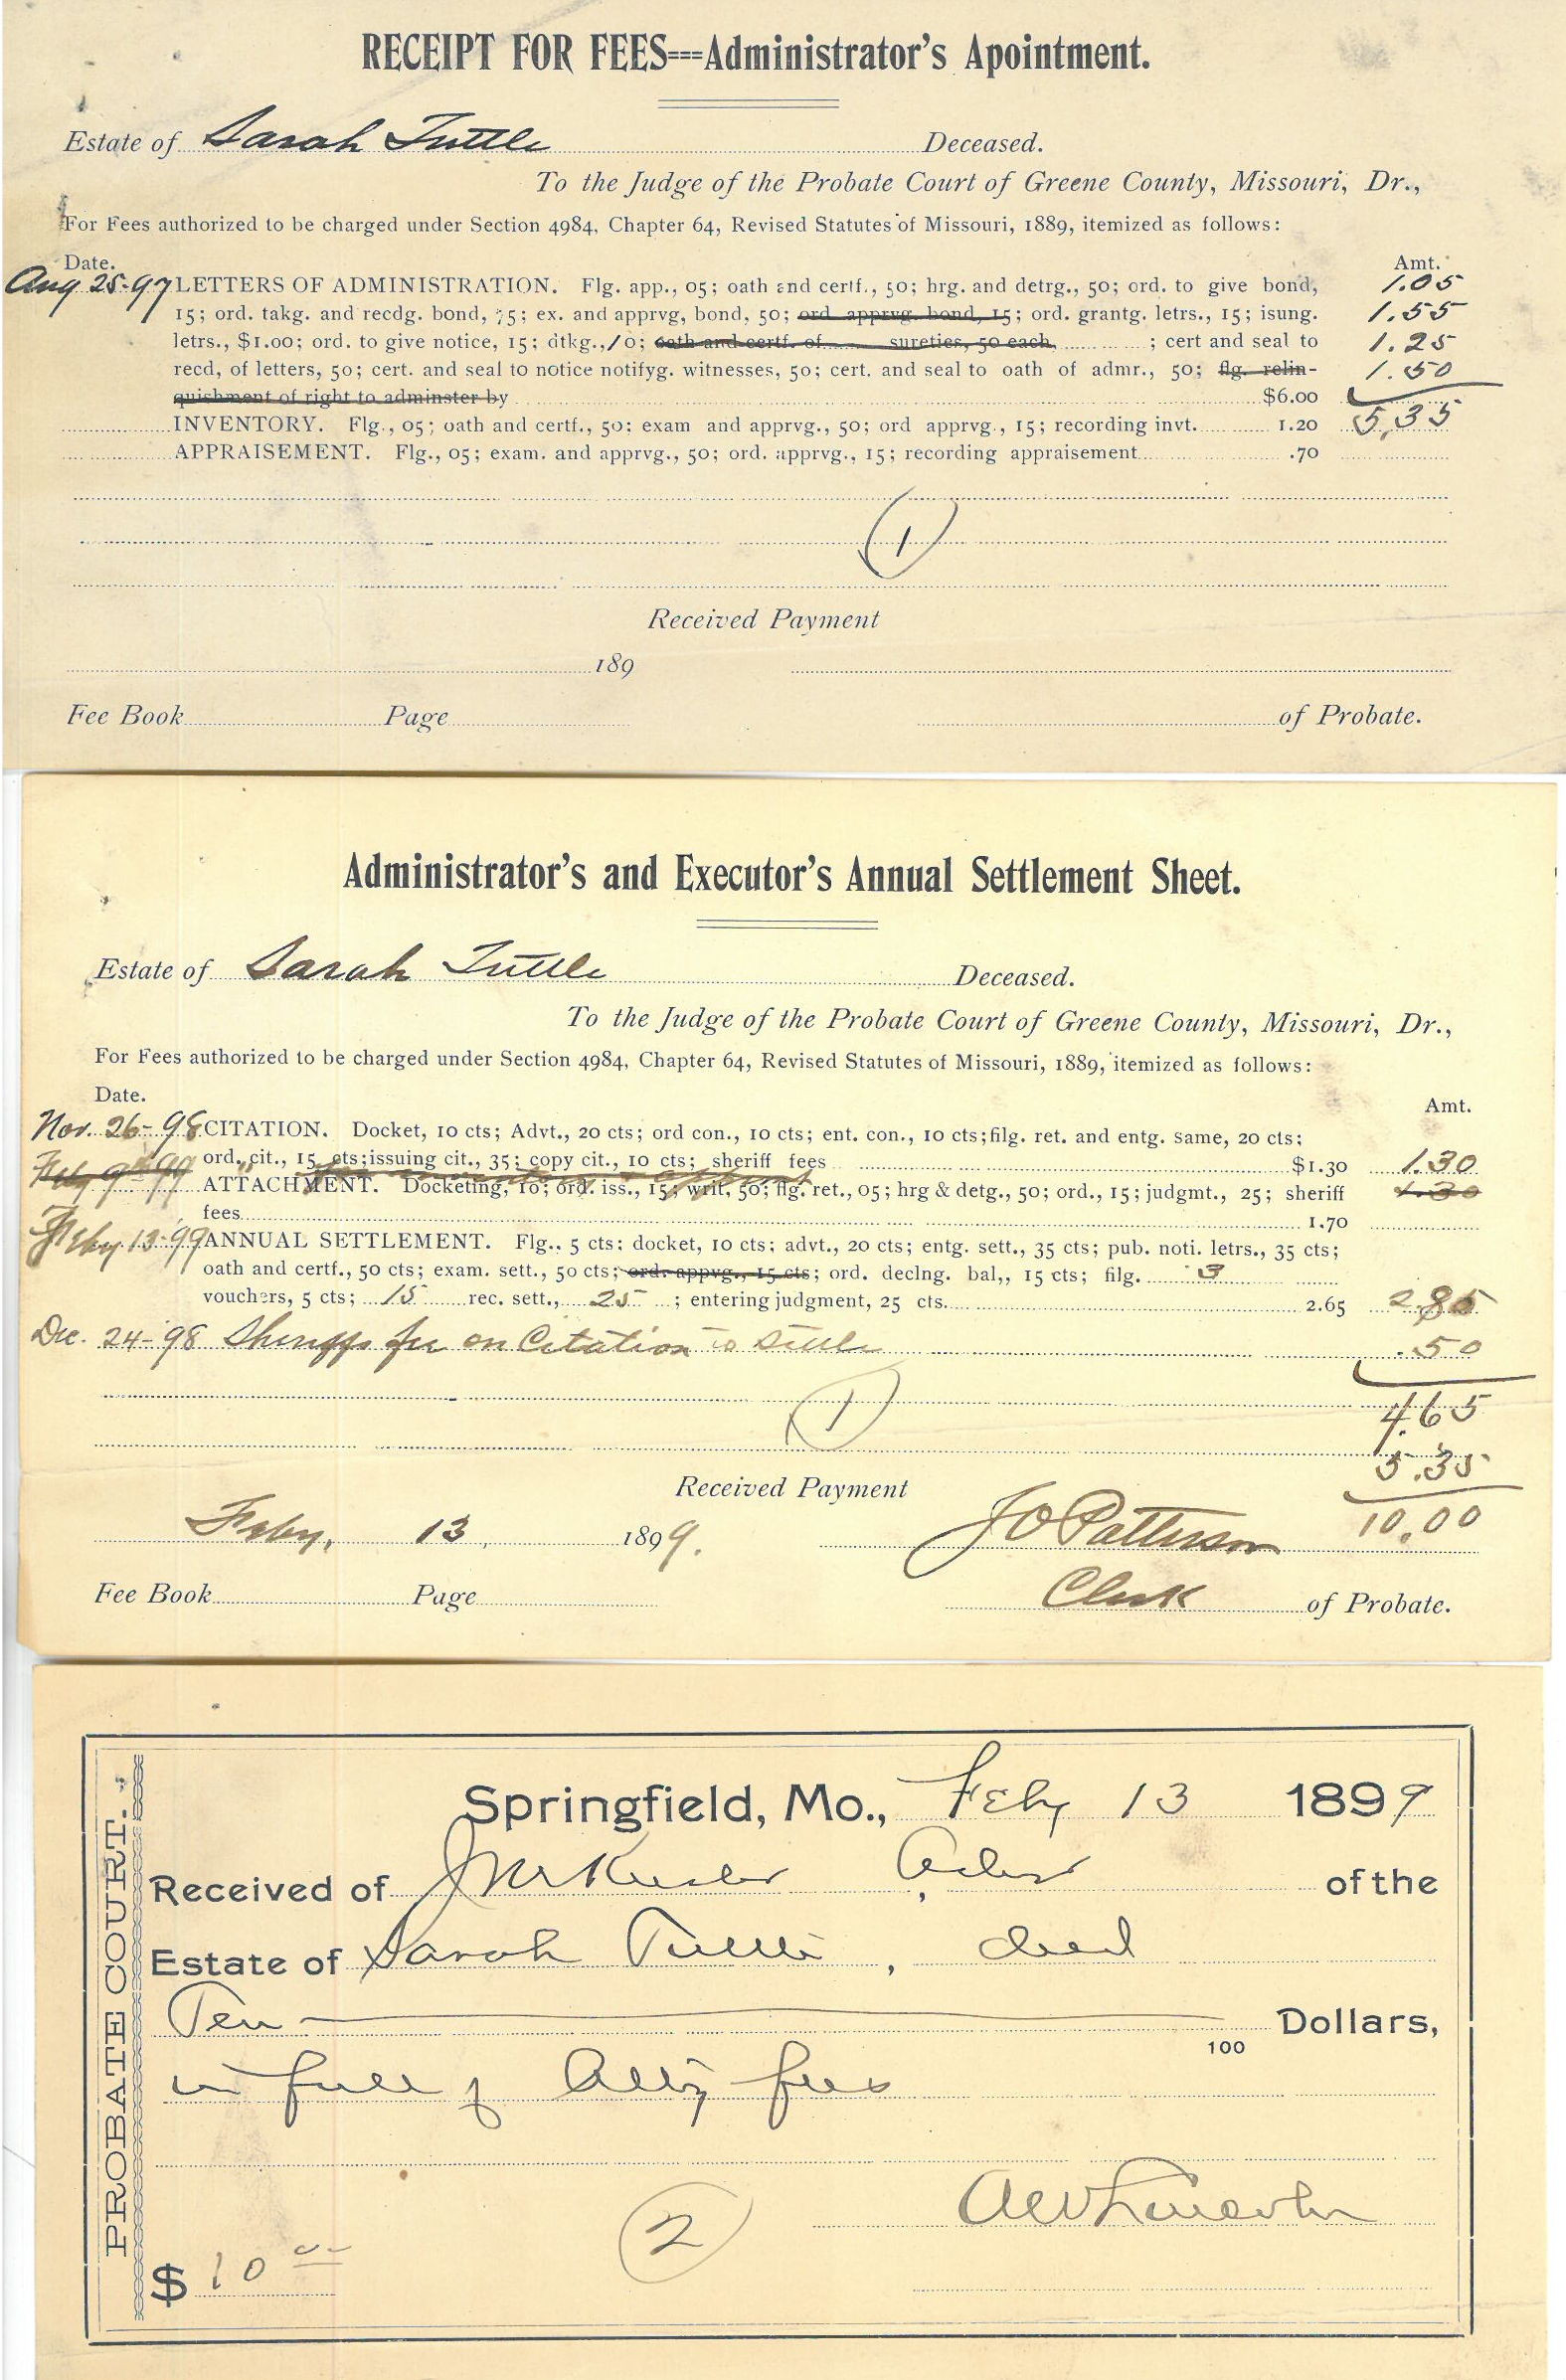 RECEIPT FOR FEES==Administrator's Apointment.
Estate of Sarah Tuttle Deceased.
To the Judge of the Probate Court of Greene County, Missouri, Dr.,
For Fees authorized to be charged under Section 4984, Chapter 64, Revised Statutes of Missouri, 1889, itemized as follows:
Date. Amt.
Aug 25-97 LETTERS OF ADMINISTRATION. Flg. app., 05; oath and certf., 50; hrg. and detrg., 50; ord. to give bond, 1.05
15; ord. takg. and recdg. bond, 75; ex. and apprvg, bond, 50; ord. apprvg. bond, 15; ord. grantg. letrs., 15; isung. 1.55
letrs., $1.00; ord. to give notice, 15; dtkg., 10; oath and certf. of sureties, 50 each, ; cert and seal to 1.25
recd, of letters, 50; cert. and seal to notice notifyg. witnesses, 50; cert. and seal to oath of admr., 50; flg. relin- 1.50
quishment of right to adminster by $6.00
INVENTORY. Flg., 05; oath and certf., 50; exam and apprvg., 50; ord apprvg., 15; recording invt. 1.20 5.35
APPRAISEMENT. Flg., 05; exam. and apprvg., 50; ord. apprvg., 15; recording appraisement .70
1
Received Payment
189
Fee Book Page of Probate.
Administrator's and Executor's Annual Settlement Sheet.
Estate of Sarah Tuttle Deceased.
To the Judge of the Probate Court of Greene County, Missouri, Dr.,
For Fees authorized to be charged under Section 4984, Chapter 64, Revised Statutes of Missouri, 1889, itemized as follows:
Date. Amt.
Nov. 26-98 CITATION. Docket, 10 cts; Advt., 20 cts; ord con., 10 cts; ent. con., 10 cts; filg. ret. and entg. same, 20 cts;
ord. cit., 15 cts; issuing cit., 35; copy cit., 10 cts; sheriff fees $1.30 1.30
Feby 9th 99 ATTACHMENT. Docketing, 10; ord. iss., 15; writ, 50; flg. ret., 05; hrg & detg., 50; ord., 15; judgmt., 25; sheriff 1.30
fees 1.70
Feby 13-99 ANNUAL SETTLEMENT. Flg., 5 cts; docket, 10 cts; advt., 20 cts; entg. sett., 35 cts; pub. noti. letrs., 35 cts;
oath and certf., 50 cts; exam. sett., 50 cts; ord. appvg., 15 cts; ord. declng. bal,, 15 cts; filg. 3
vouchers, 5 cts; 15 rec. sett., 25 ; entering judgment, 25 cts. 2.65 2.85
Dec. 24-98 Sheriffs fee on Citation to Settle .50
1
4.65
5.35
Received Payment
Feby, 13, 1899. J O Patterson 10.00
Clerk of Probate.
Fee Book Page
PROBATE COURT.
Springfield, Mo., Feby 13 1899
Received of of the
Estate of Sarah Tuttle, decd
Ten Dollars,
100
in full of Atty fees
2
A W Lincoln
$ 10 00